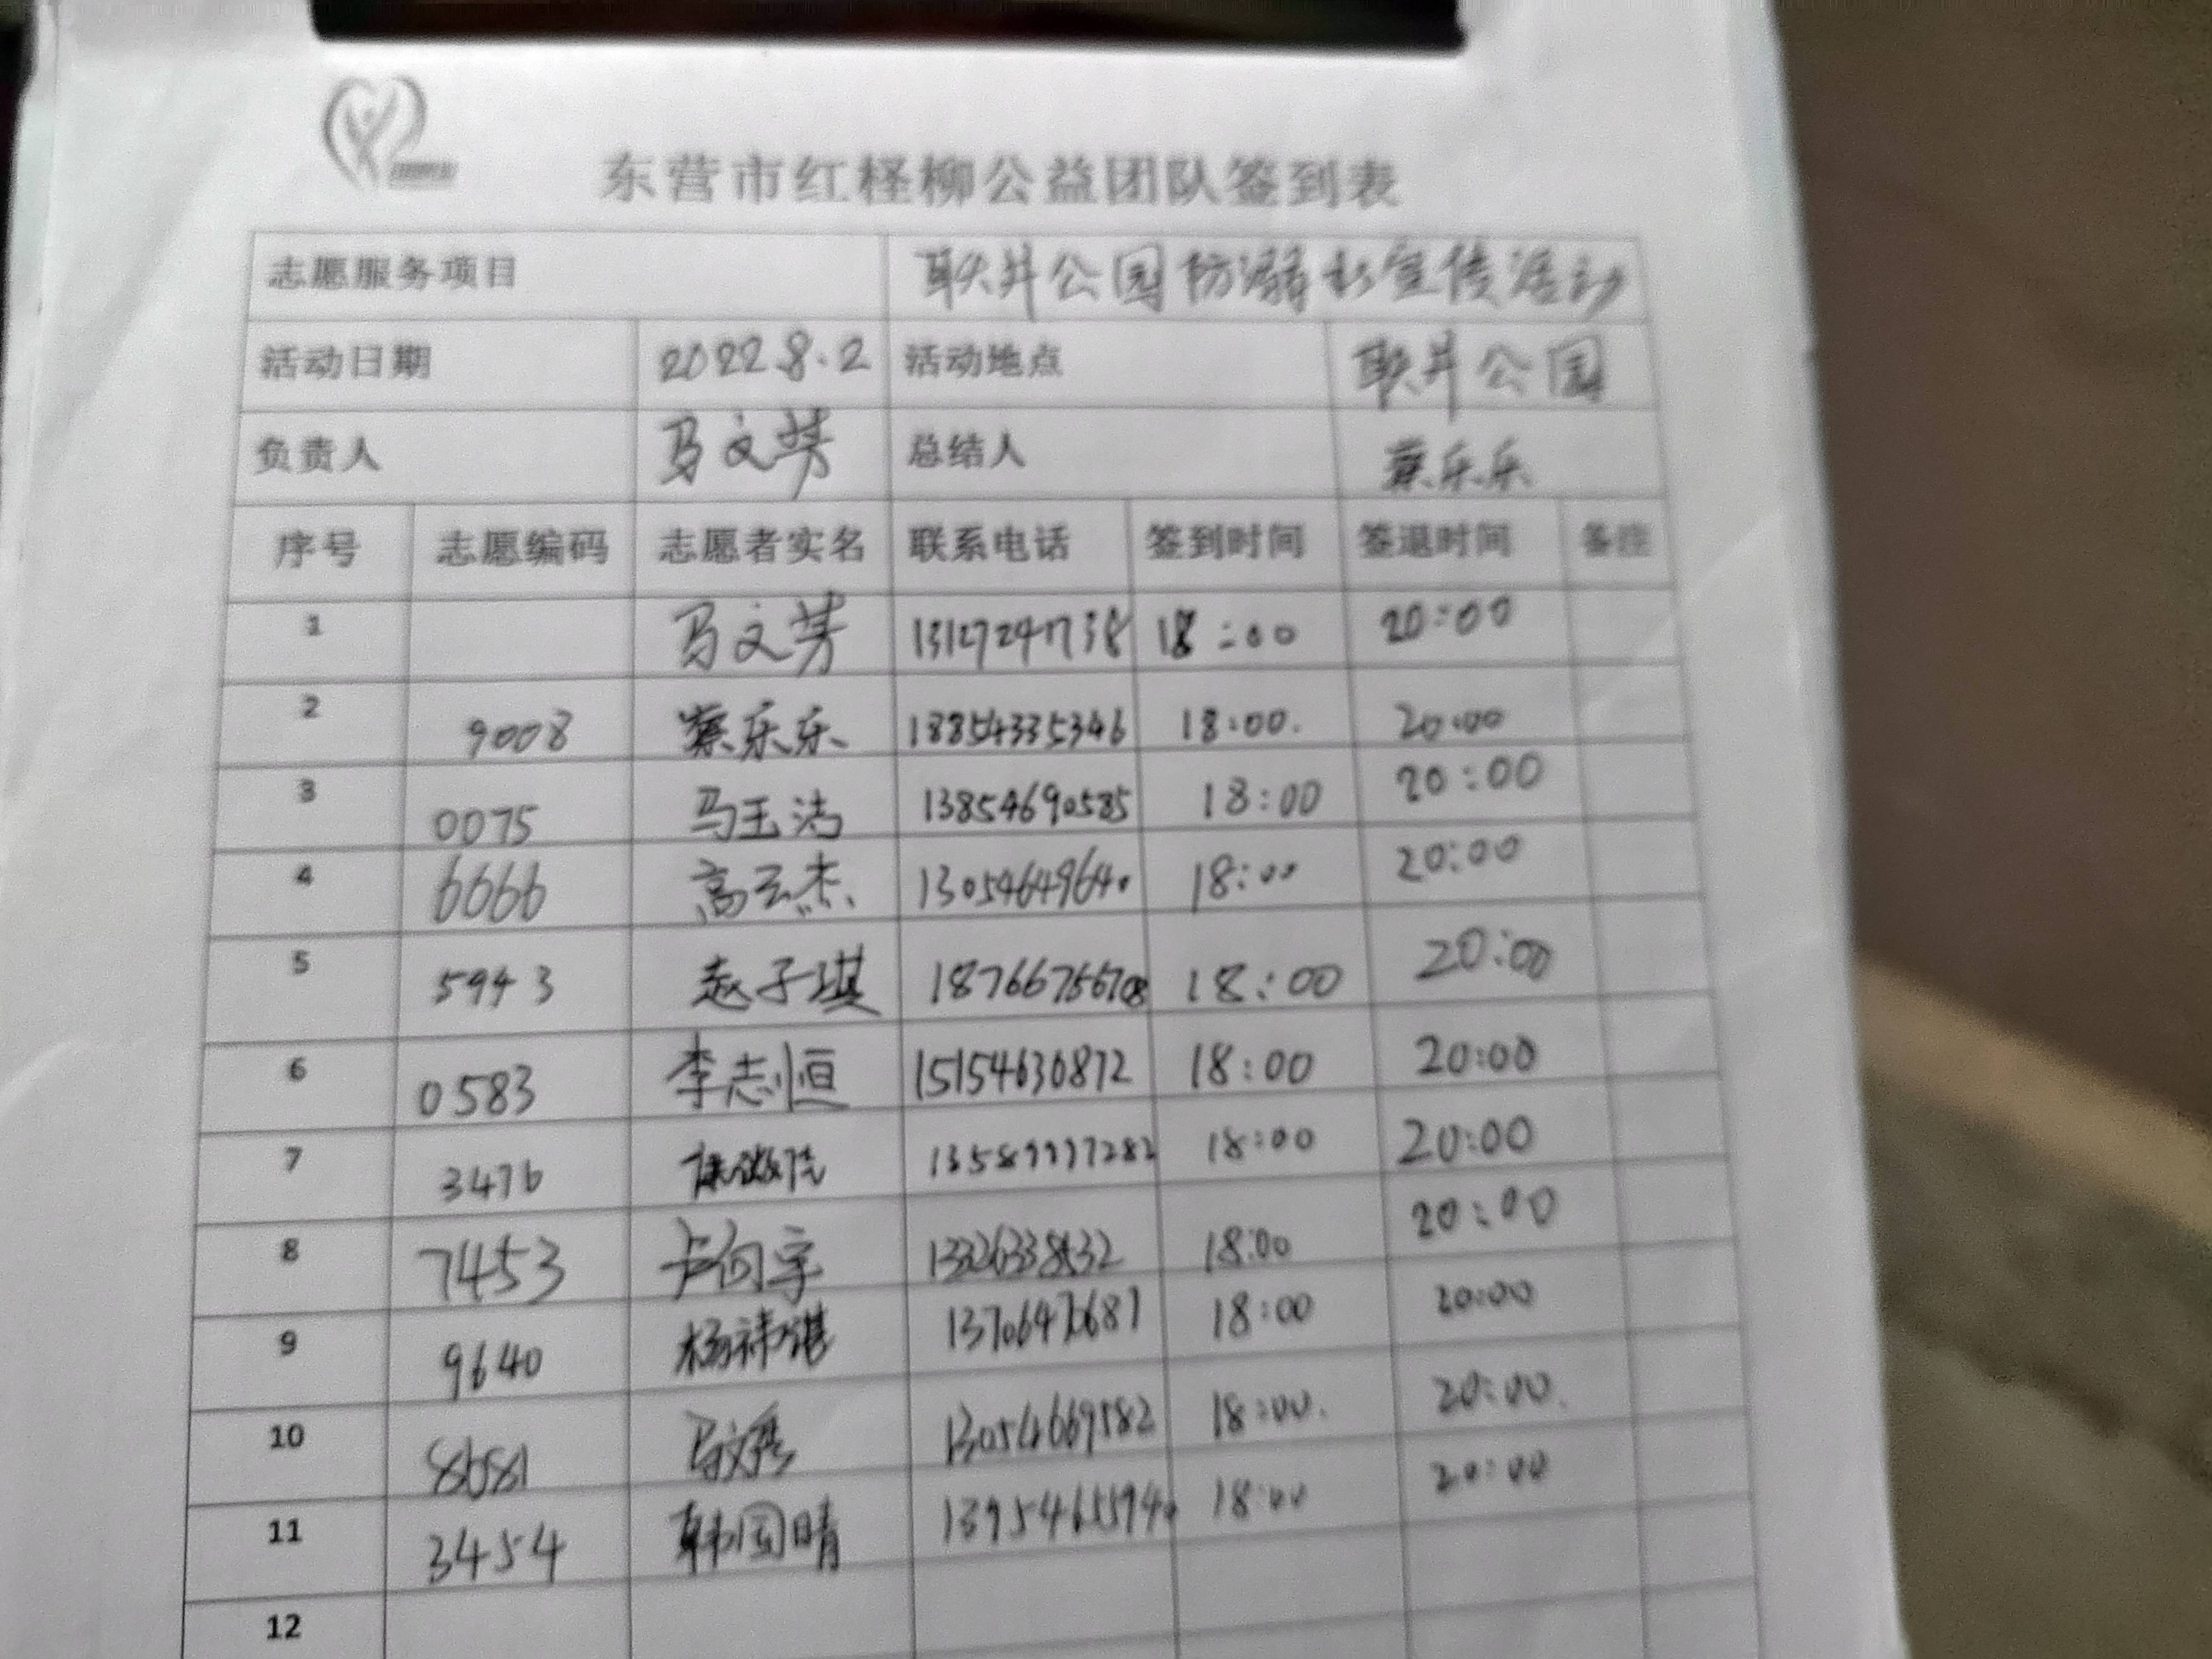 东营市红柽柳公益团队签到表
志愿服务项目 耿井公园防溺水宣传活动
活动日期 2022.8.2 活动地点 耿井公园
负责人 马文芳 总结人 蔡乐乐
序号 志愿编码 志愿者实名 联系电话 签到时间 签退时间 备注
1 马文芳 13127247738 18:00 20:00
2 9008 蔡乐乐 18854335346 18:00. 20:00
3 0075 马玉洁 13854690585 18:00 20:00
4 6666 高玉杰 13054649640 18:00 20:00
5 5943 赵子琪 18766756708 18:00 20:00
6 0583 李志恒 15154630872 18:00 20:00
7 3476 18:00 20:00
8 7453 18:00 20:00
9 9640 18:00 20:00
10 13054669582 18:00. 20:00.
11 3454 韩国晴 18:00 20:00
12